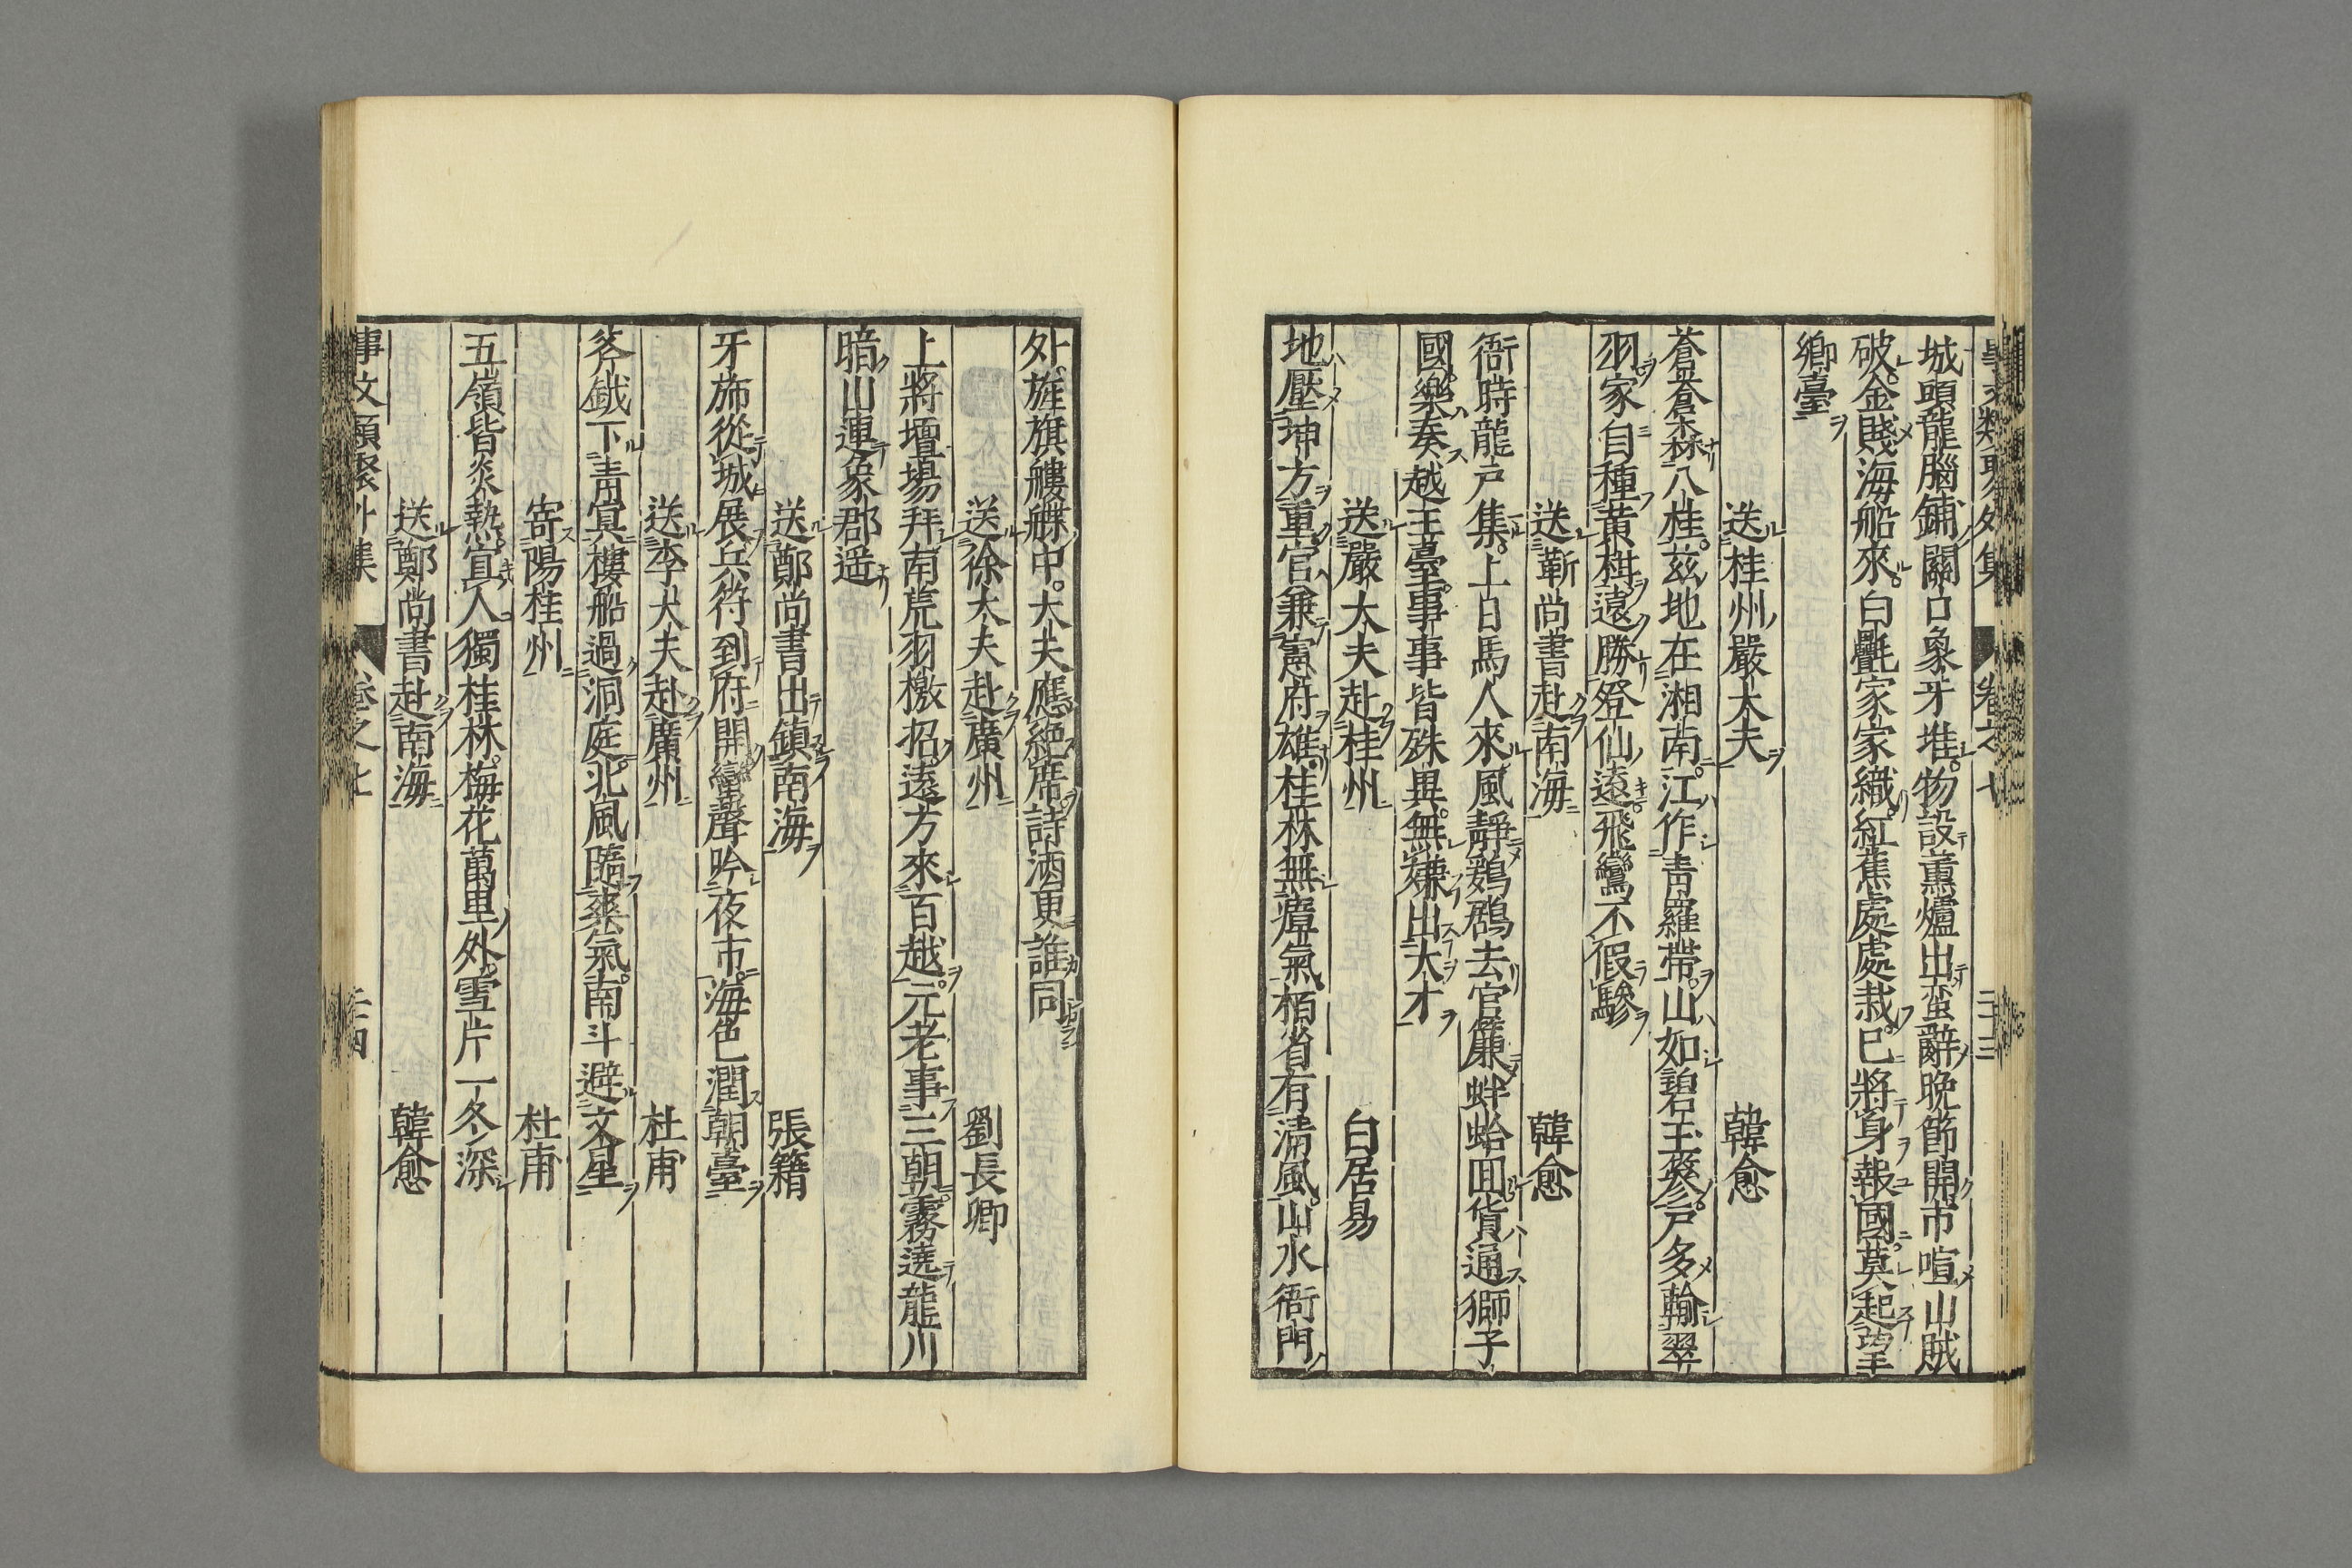 事文類聚外集 卷之七 二十三
城頭龍腦鋪關口象牙堆物設薰爐出蛮辭晚節開市喧山賊
破金賤海船來白㲲家家織紅蕉處處栽已將身報國莫起望
卿臺
送桂州嚴大夫 韓愈
蒼蒼森八桂茲地在湘南江作青羅帶山如碧玉簪戶多輸翠
羽家自種黃柑遠勝登仙遠飛鸞不假驂
送鄭尚書赴南海 韓愈
衙時龍戶集上日馬人來風靜鷄鵶去官簾蚌蛤囬貨通獅子
國樂奏越王臺事事皆殊異無嫌出大才
送嚴大夫赴桂州 白居易
地壓坤方重官兼憲府雄桂林無瘴氣栢省有清風山水衙門
外旌旗艛艓中大夫應絕席詩酒更誰同
送徐大夫赴廣州 劉長卿
上將壇場拜南荒羽檄招遠方來百越元老事三朝霧遶龍川
暗山連象郡遥
送鄭尚書出鎮南海 張籍
牙斾從城展兵符到府開蠻聲吟夜市海色潤朝臺
送李大夫赴廣州 杜甫
斧鉞下青冥樓船過洞庭北風隨爽氣南斗避文星
寄陽桂州 杜甫
五嶺皆炎熱宜人獨桂林梅花萬里外雪片一冬深
送鄭尚書赴南海 韓愈
事文類聚外集 卷之七 二十四